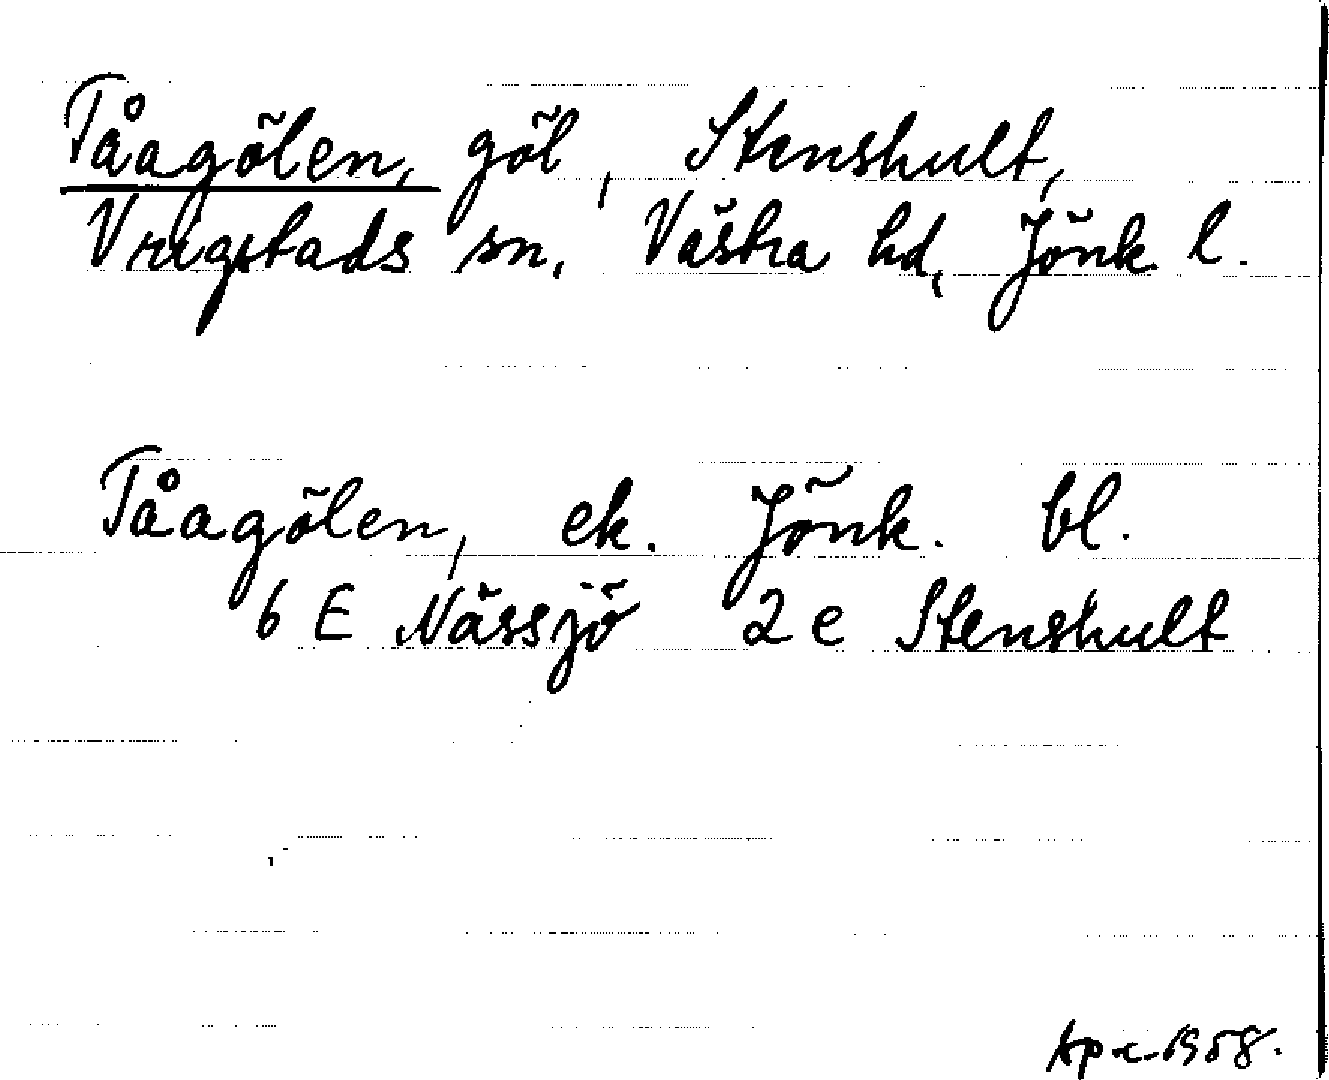 Tåagölen, göl, Stenshult,
Vrigstads sn, Västra hd, Jönk. l.
Tåagölen, ek. Jönk. bl.
6 E Nässjö 2 e Stenshult
1958.